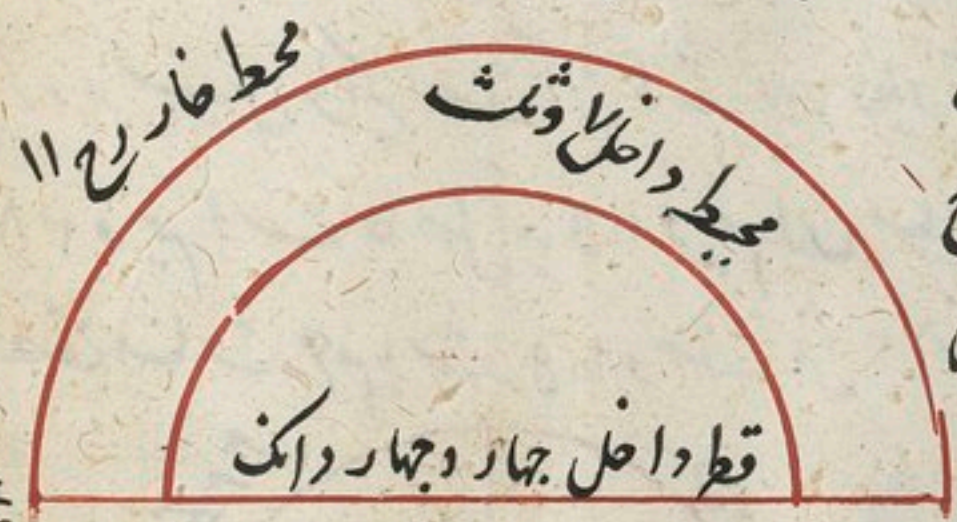 محیط خارج ۱۱
محیط داخل ۷ وثلث
قطر داخل جهار و جهار دانک